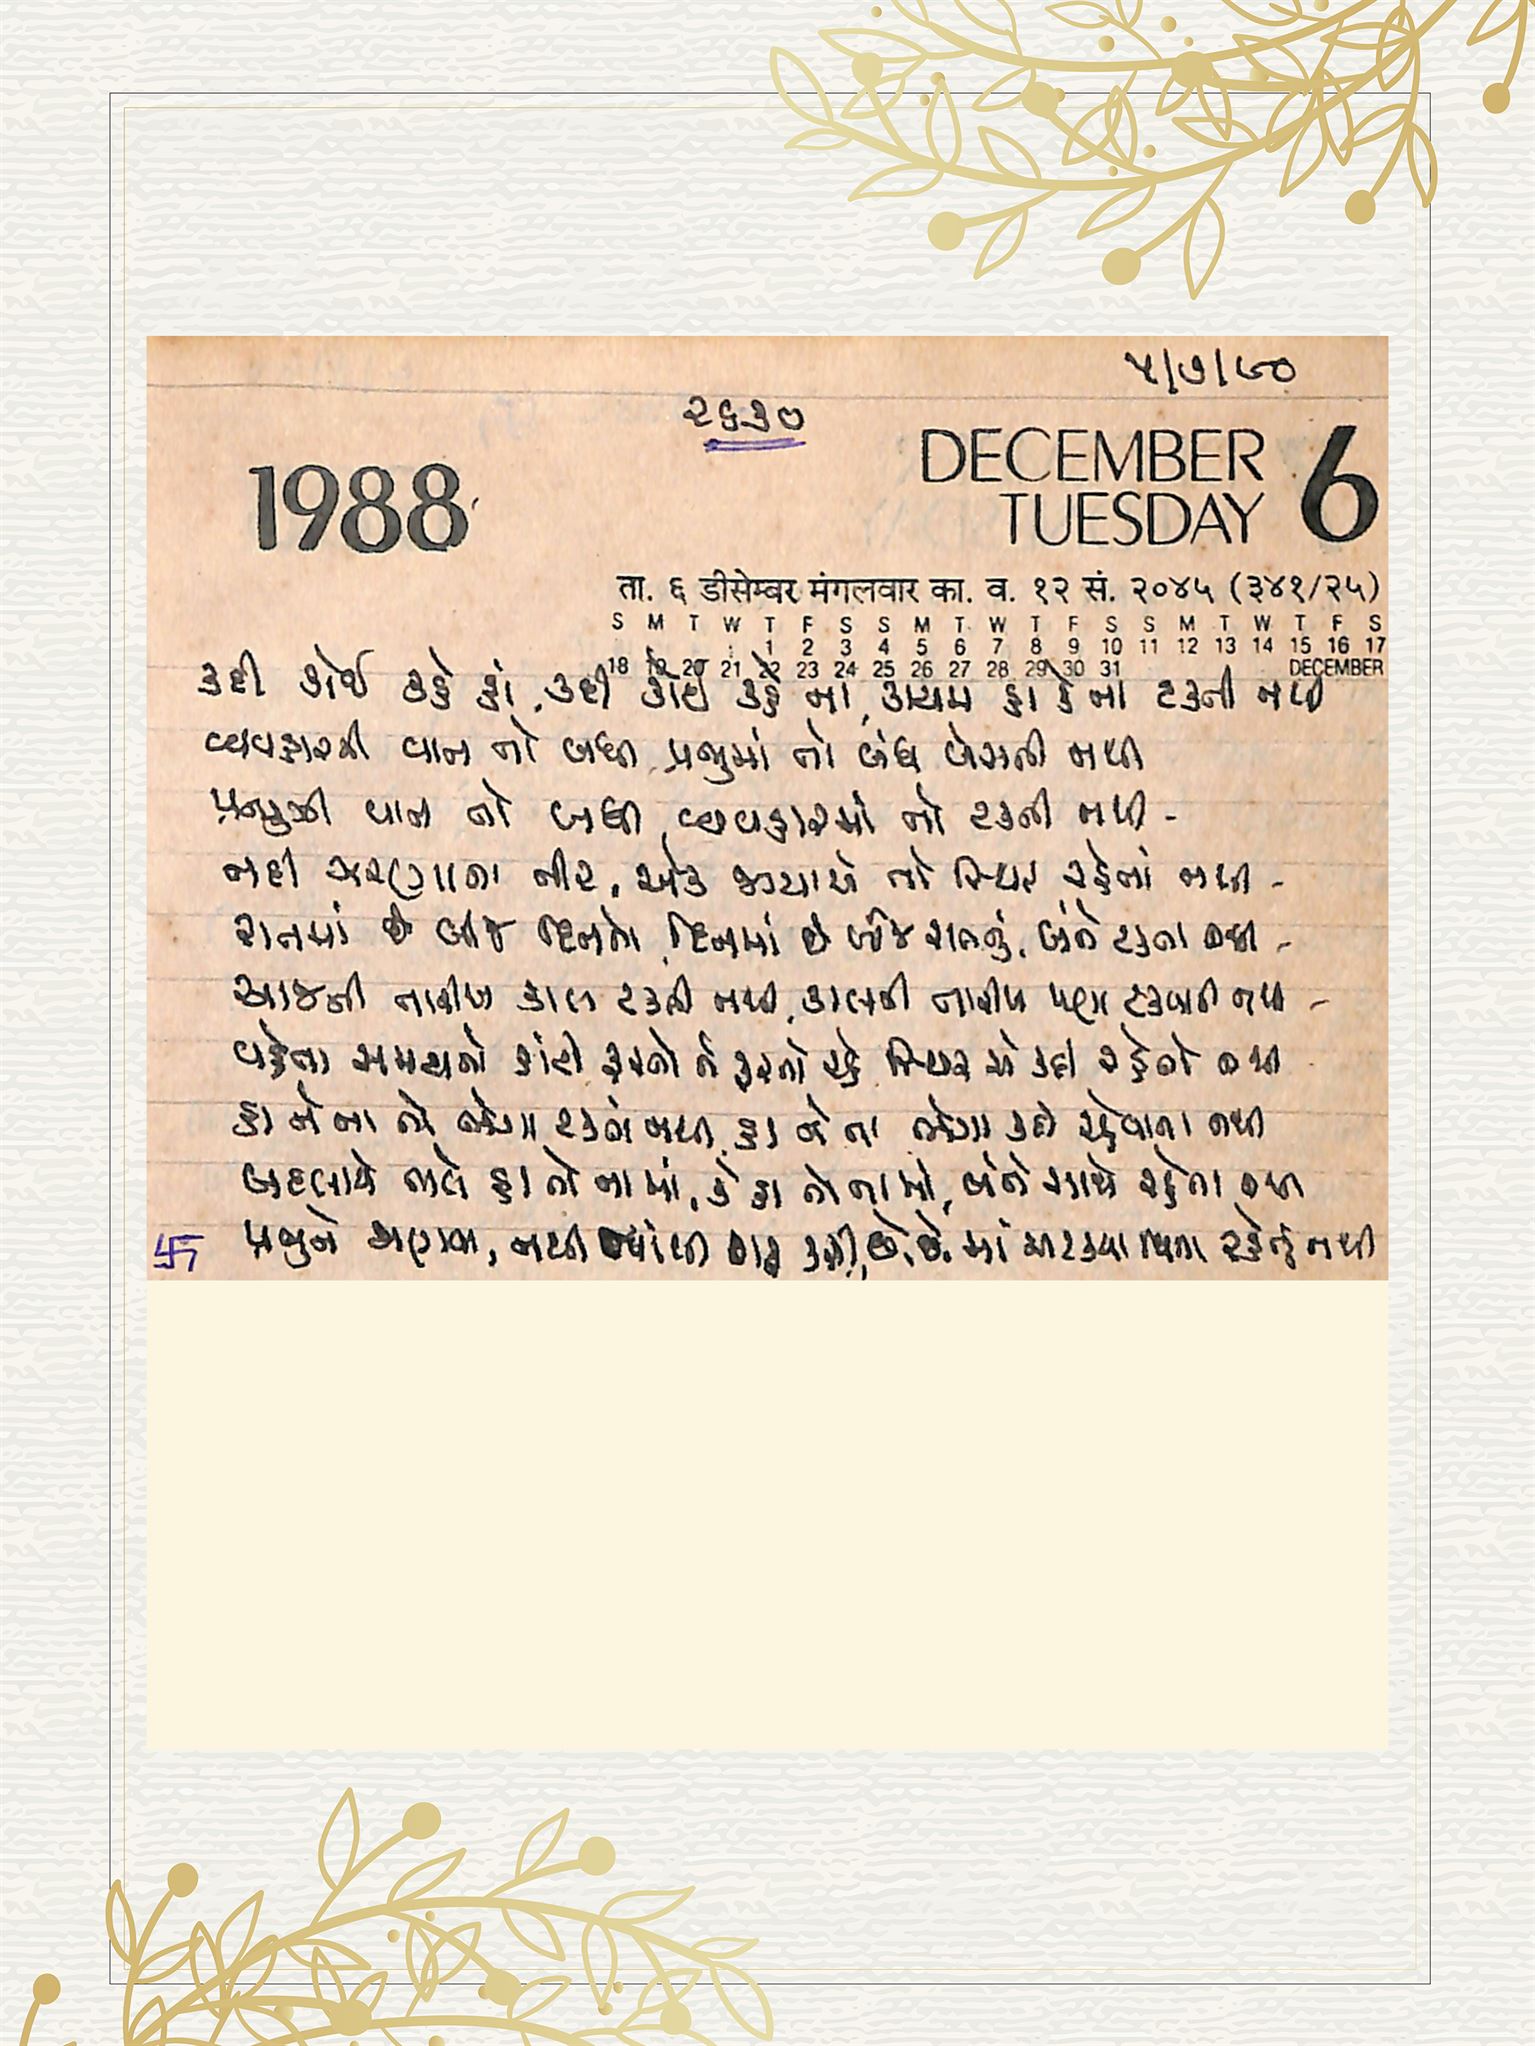 ૫/૭/૯૦
૨૬૩૦
1988
DECEMBER 6
TUESDAY
ता. ६ डीसेम्बर मंगलवार का. व. १२ सं. २०४५ (३४१/२५)
S M T W T F S S M T W T F S S M T W T F S
1 2 3 4 5 6 7 8 9 10 11 12 13 14 15 16 17
18 19 20 21 22 23 24 25 26 27 28 29 30 31 DECEMBER
કદી કોઈ કહે હાં, કદી કોઈ કહે ના, કાયમ હા કે ના ટકતી નથી
વ્યવહારની વાત તો બધી પ્રભુમાં તો બંધ બેસતી નથી
પ્રભુની વાત તો બધી, વ્યવહારમાં તો ટકતી નથી -
નદી ઝરણાના નીર, એક જગ્યાએ તો સ્થિર રહેતાં નથી -
રાતમાં છે બીજ દિનનો, દિનમાં છે બીજ રાતનું, બંને ટકતા નથી -
આજની તારીખ કાલ ટકતી નથી, કાલની તારીખ પણ ટકવાની નથી -
વહેતા સમયનો કાંટો ફરતો ને ફરતો રહે સ્થિર એ કદી રહેતો નથી
હા ને ના તો ભેગા ટકતાં નથી, હા ને ના ભેગા કદી રહેવાના નથી
બદલાયે ભલે હા તો ના માં, કે હા તો ના માં, બંને સાથે રહેતા નથી
પ્રભુને જાણવા, નથી જ્યાંથી બાદ કરી, છે, છે માં અટક્યા વિના રહેતું નથી
卐